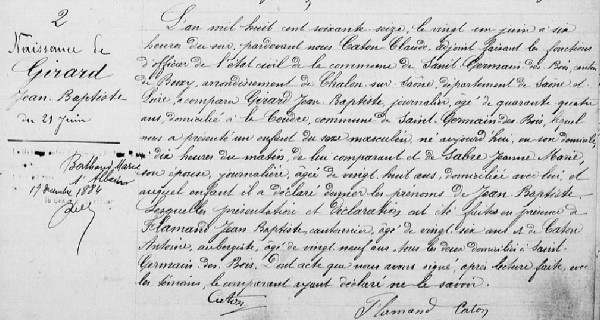 2
Naissance de
Girard
Jean Baptiste
du 21 Juin
17 décembre 1884
L'an mil huit cent soixante seize, le vingt un juin à six
heures du soir, pardevant nous Caton Claude, adjoint faisant les fonctions
d'officier de l'état civil de la commune de Saint Germain des Bois, canton
de Buxy, arrondissement de Chalon sur Saône, département de Saône et
Loire, a comparu Girard Jean Baptiste, journalier, âgé de quarante quatre
ans, domicilié à le Coudre, commune de Saint Germain des Bois, lequel
nous a présenté un enfant du sexe masculin, né aujourd'hui, en son domicile,
à dix heures du matin, de lui comparant et de Sabre Jeanne Marie,
son épouse, journalière, âgée de vingt huit ans, domiciliée avec lui, et
auquel enfant il a déclaré donner les prénoms de Jean Baptiste.
Lesquelles présentation et déclaration ont été faites en présence de
Flamand Jean Baptiste, cantonnier, âgé de vingt six ans et de Caton
Antoine, aubergiste, âgé de vingt neuf ans tous les deux domiciliés à Saint
Germain des Bois. Dont acte que nous avons signé, après lecture faite, avec
les témoins, le comparant ayant déclaré ne le savoir.
Flamand Caton